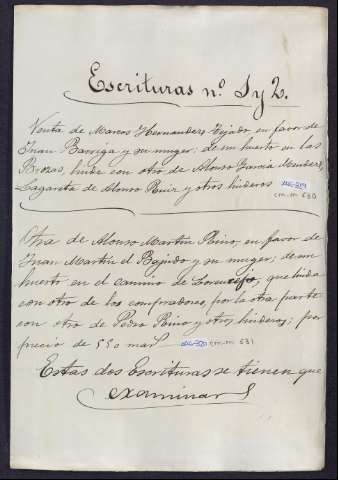 Escrituras nº 1 y 2.
Venta de Marcos Hernandez Tejado en favor de
Juan Barriga y su muger; de un huerto en las
Brozas, linde con otro de Alonso García Mendez,
Lagareta de Alonso Ruiz y otros linderos
cm.m 630
Otra de Alonso Martin Pino, en favor de
Juan Martin el Bajudo y su muger; de un
huerto en el camino de que linda
con otro de los compradores, por la otra parte
con otro de Pedro Pino y otros linderos; por
precio de 550 mar
cm.m 631
Estas dos Escrituras se tienen que
examinar